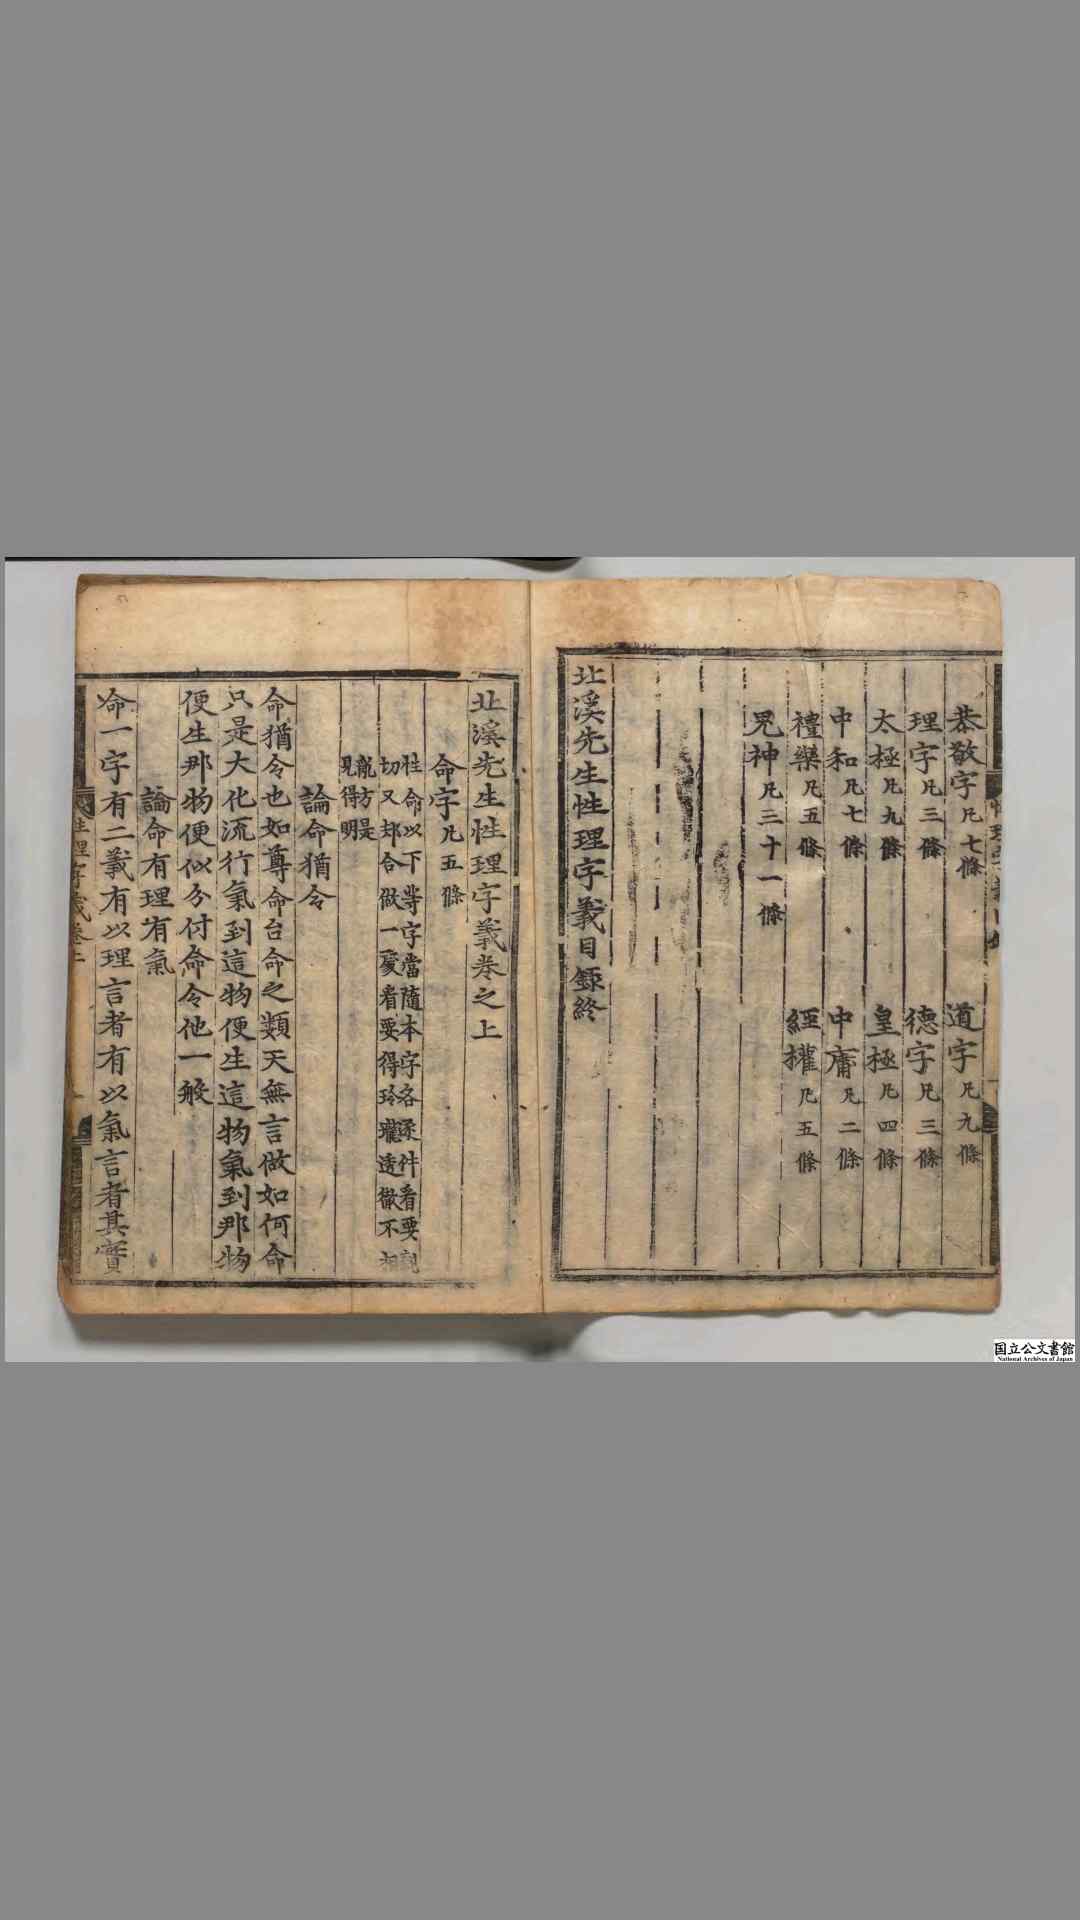 恭敬字凡七條 道字凡九條
理字凡三條 德字凡三條
太極凡九條 皇極凡四條
中和凡七條 中庸凡二條
禮樂凡五條 經權凡五條
鬼神凡三十一條
北溪先生性理字義目録終
北溪先生性理字義卷之上
命字凡五條
性命以下等字當隨本字各逐件看要
切又却合做一處看要得玲瓏透徹不相
亂方是
見得明
論命猶令
命猶令也如尊命台命之類天無言做如何命
只是大化流行氣到這物便生這物氣到那物
便生那物便似分付命令他一般
論命有理有氣
命一字有二義有以理言者有以氣言者其實
国立公文書館
National Archives of Japan